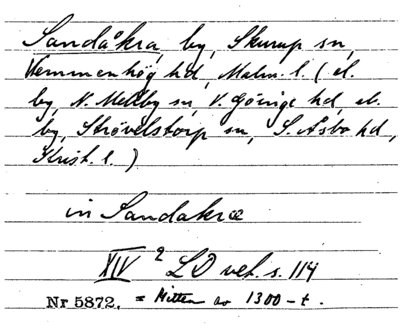 Sandåkra, by, Skurup sn,
Vemmenhög hd, Malm. l. (el.
by, N. Mellby sn, V. Göinge hd, el.
by, Strövelstorp sn, S. Åsbo hd,
Krist. l.)
in Sandakræ
XIV 2 LD vet. s. 114
Nr 5872. = Mitten av 1300-t.